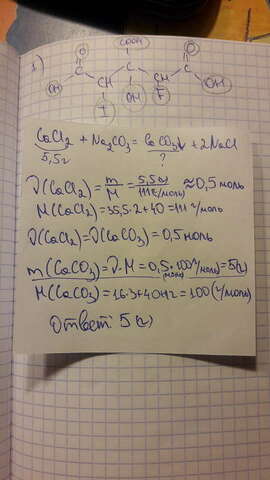 1)
COOH
O O
C C C
OH CH CH OH
I OH F
CaCl2 + Na2CO3 = CaCO3↓ + 2NaCl
5,5г ?
ν(CaCl2) = m/M = 5,5(г)/111(г/моль) ≈ 0,5 моль
M(CaCl2) = 35,5·2 + 40 = 111 г/моль
ν(CaCl2) = ν(CaCO3) = 0,5 моль
m(CaCO3) = ν·M = 0,5(моль)·100(г/моль) = 5(г)
M(CaCO3) = 16·3 + 40 + 12 = 100 (г/моль)
Ответ: 5(г)